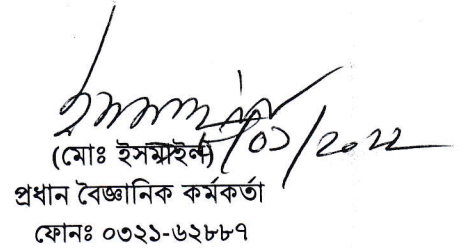 /০১/২০২২
(মোঃ ইসমাইল)
প্রধান বৈজ্ঞানিক কর্মকর্তা
ফোনঃ ০৩২১-৬২৮৮৭